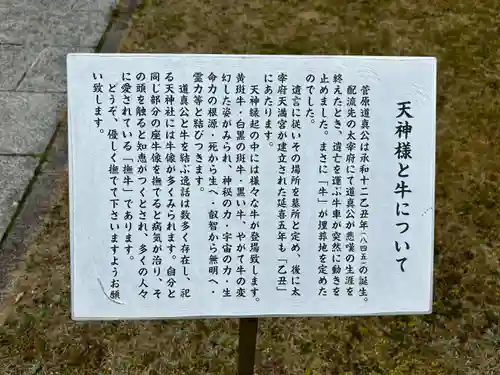 天神様と牛について
菅原道真公は承和十二乙丑年(八四五)の誕生。
配流先の太宰府にて道真公が悲嘆の生涯を
終えたとき、遺亡を運ぶ牛車が突然に動きを
止めました。まさに「牛」が埋葬地を定めた
のでした。
遺言に従いその場所を墓所と定め、後に太
宰府天満宮が建立された延喜五年も「乙丑」
にあたります。
天神縁起の中には様々な牛が登場致します。
黄斑牛・白黒の斑牛、黒い牛、やがて牛の変
幻した姿がみられ、神秘の力・宇宙の力・生
命力の根源・死から生へ・叡智から無明へ・
霊力等と結びつきます。
道真公と牛を結ぶ逸話は数多く存在し、祀
る天神社には牛像が多くみられます。自分と
同じ部分の座牛像を撫でると病気が治り、そ
の頭を触ると知恵がつくとされ、多くの人々
に愛されている「撫牛」であります。
どうぞ、優しく撫でて下さいますようお願
い致します。